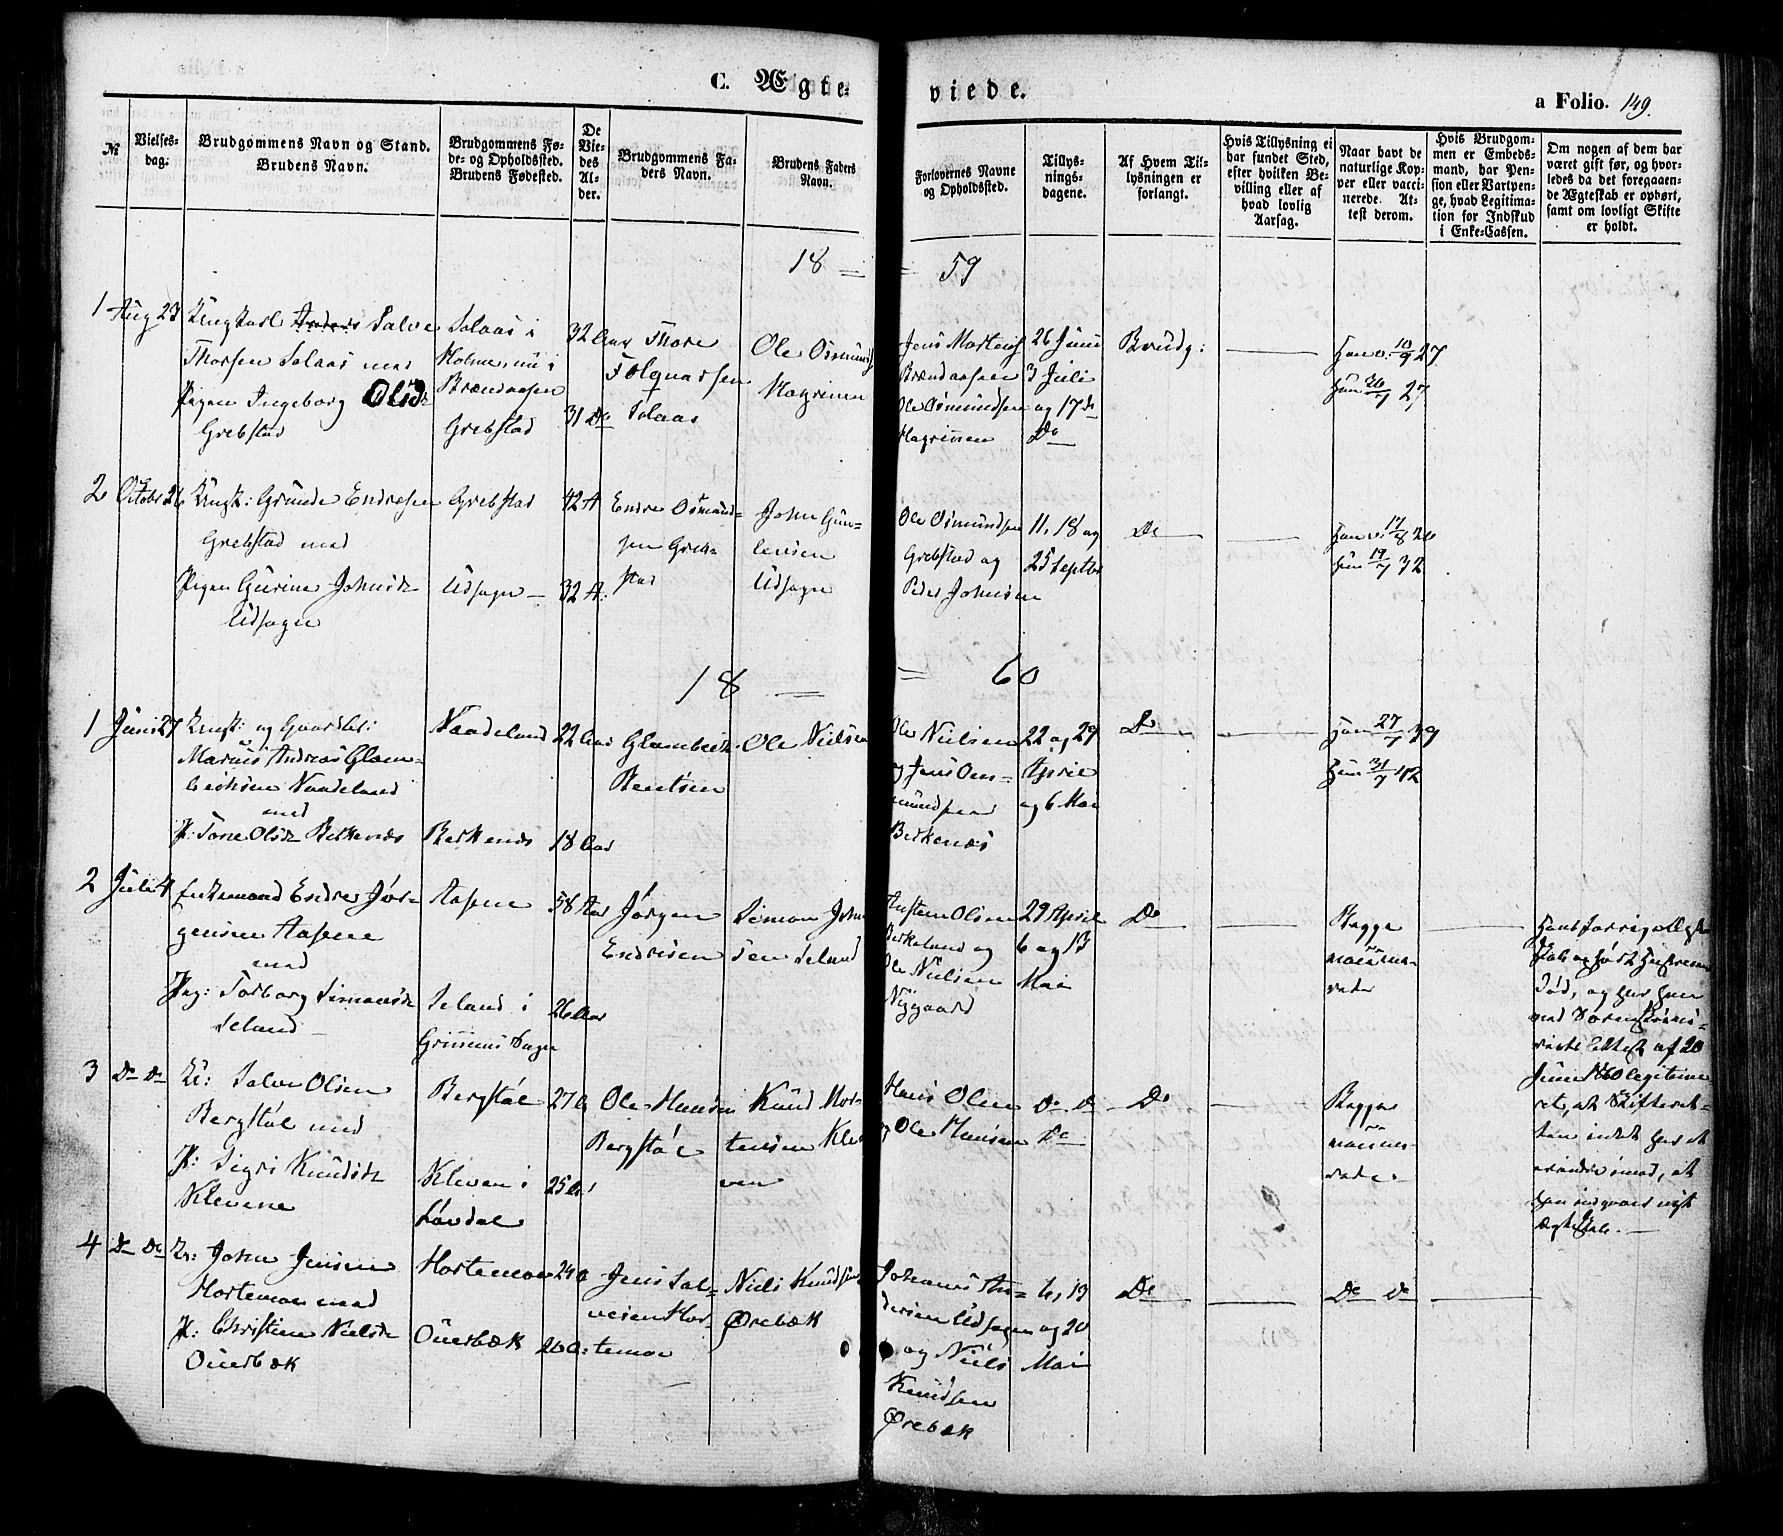 C. Ægte
viede.
a Folio. 149.
№
Vielses-
dag:
Brudgommens Navn og Stand.
Brudens Navn.
Brudgommens Fø-
de- og Opholdssted.
Brudens Fødested.
De
Vie-
des
Al-
der.
Brudgommens Fa-
ders Navn.
Brudens Faders
Navn.
Forlovernes Navne
og Opholdssted.
Tillys-
nings-
dagene.
Af Hvem Til-
lysningen er
forlangt.
Hvis Tillysning ei
har fundet Sted,
efter hvilken Be-
villing eller af
hvad lovlig
Aarsag.
Naar havt de
naturlige Kop-
per eller vacci-
nerede. At-
test derom.
Hvis Brudgom-
men er Embeds-
mand, har Pen-
sion eller Vartpen-
ge, hvad Legitima-
tion for Indskud
i Enke-Cassen.
Om nogen af dem har
været gift før, og hvor-
ledes da det foregaaen-
de Ægteskab er ophørt,
samt om lovligt Skifte
er holdt.
18 = = 59
1 Aug 23
Ungkarl Anders Salve
Thorsen Solaas med
Pigen Ingeborg Olsdr
Grebstad
Solaas i
Holme, nu i
Brændaasen
Grebstad
32 Aar
31 Do
Thore
Folqvarsen
Solaas
Ole Osmunds
Hagrinen
Jens Mortens
Brændaasen
Ole Osmundsen
Hagrinen
26 Juni
3 Juli
og 17de
Do
Brudg:
Han v. 10/9 27
Hun 26/7 27
2 Octobr 26
Ungk: Gunde Endresen
Grebstad med
Pigen Gurine Johnsdr
Udsogn
Grebstad
Udsogn
42 A
32 A:
Endre Osmund-
sen Greb-
stad
John Gun-
levsen
Udsogn
Ole Osmundsen
Grebstad og
Peder Johnsen
11, 18 og
25 Septbr
Do
Han v. 17/8 20
Hun 19/7 32
18 = = 60
1 Juni 27
Ungk: og Gaardbr:
Marius Andreas Glam-
beksen Naadeland
med
P: Tone Olsdr Berkenes
Naadeland
Berkenes
22 Aar
18 Aar
Glambek
Bentsen
Ole Nielsen
Ole Nielsen
og Jens Om-
mundsen
Berkenes
22 og 29
April
og 6 Mai
Do
Han 27/7 39
Hun 31/7 42
2 Juli 4
Enkemand Endre Jør-
gensen Aasene
med
Pig: Torborg Simonsdr
Seland
Aasene
Seland i
58 Aar
26 Aar
Jørgen
Endresen
Simon John-
sen Seland
Austenn Olsen
Berkeland og
Ole Nielsen
Nygaard
29 April
6 og 13
Mai
Do
Begge
vaccine-
rede
Hans forrige Ægte-
Død, og har han
af 20
Juni 1860 legitime-
ret, at Skifteret-
ten intet har at
erindre imod, at
han indgaaer nyt
Ægteskab.
3 Do Do
U: Salve Olsen
Bergstøl med
P: Sigri Knudsdr
Klevene
Bergstøl
Kleven i
Løvdal
27 A
25 A
Ole Hansen
Bergstøl
Knud Mor-
tensen Kle-
ven
Hans Olsen
Ole Hansen
Do Do
Do
Do
Begge
vaccine-
rede
4 Do Do
U: John Jensen
Hortemoe med
P: Christine Nielsdr
Ouerbæk
Hortemoe
Ouerbæk
24 A
26 A:
Jens Sal-
vesen Hor-
temoe
Niels Knudsen
Ørebæk
Johannes An-
dersen Udsogn
og Niels
Knudsen
Ørebæk
6, 13
og 20
Mai
Do
Do Do